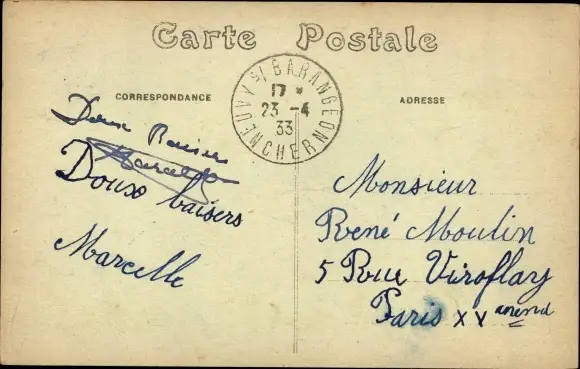 Carte Postale
CORRESPONDANCE
ADRESSE
NEUVY St BARANGEON
CHER
17 *
23 -4
33
Doux Baisers
Marcelle
Doux baisers
Marcelle
Monsieur
René Moulin
5 Rue Viroflay
Paris XV